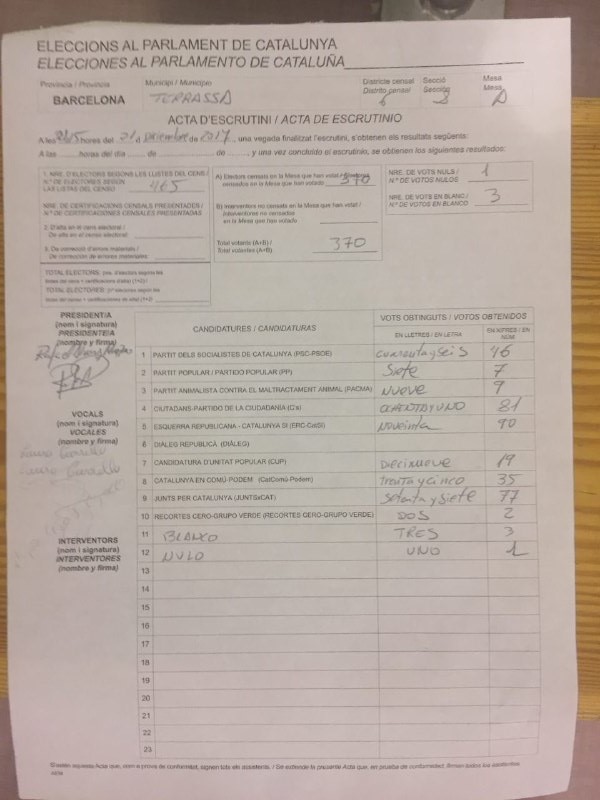 ELECCIONS AL PARLAMENT DE CATALUNYA
ELECCIONES AL PARLAMENTO DE CATALUÑA
Província / Provincia
BARCELONA
Municipi / Municipio
TERRASSA
Districte censal
Distrito censal
6
Secció
Sección
8
Mesa
Mesa
A
ACTA D'ESCRUTINI / ACTA DE ESCRUTINIO
A les hores del 21 d Diciembre de 2017, una vegada finalitzat l'escrutini, s'obtenen els resultats següents:
A las horas del día de de y una vez concluido el escrutinio, se obtienen los siguientes resultados:
1. NRE. D'ELECTORS SEGONS LES LLISTES DEL CENS /
N.º DE ELECTORES SEGÚN
LAS LISTAS DEL CENSO
465
NRE. DE CERTIFICACIONS CENSALS PRESENTADES /
N.º DE CERTIFICACIONES CENSALES PRESENTADAS
2. D'alta en el cens electoral /
De alta en el censo electoral:
3. De correcció d'errors materials /
De corrección de errores materiales:
TOTAL ELECTORS:
TOTAL ELECTORES:
A) Electors censats en la Mesa que han votat / Electores
censados en la Mesa que han votado
370
B) Interventors no censats en la Mesa que han votat /
Interventores no censados
en la Mesa que han votado
Total votants (A+B) /
Total votantes (A+B)
370
NRE. DE VOTS NULS /
N.º DE VOTOS NULOS
1
NRE. DE VOTS EN BLANC /
N.º DE VOTOS EN BLANCO
3
PRESIDENT/A
(nom i signatura)
PRESIDENTE/A
(nombre y firma)
VOCALS
(nom i signatura)
VOCALES
(nombre y firma)
INTERVENTORS
(nom i signatura)
INTERVENTORES
(nombre y firma)
CANDIDATURES / CANDIDATURAS
VOTS OBTINGUTS / VOTOS OBTENIDOS
EN LLETRES / EN LETRA
EN XIFRES / EN NÚM
1 PARTIT DELS SOCIALISTES DE CATALUNYA (PSC-PSOE) cuarenta y seis 46
2 PARTIT POPULAR / PARTIDO POPULAR (PP) Siete 7
3 PARTIT ANIMALISTA CONTRA EL MALTRACTAMENT ANIMAL (PACMA) NUEVE 9
4 CIUTADANS-PARTIDO DE LA CIUDADANÍA (Cs) OCHENTA Y UNO 81
5 ESQUERRA REPUBLICANA - CATALUNYA SÍ (ERC-CatSí) Noveinta 90
6 DIÀLEG REPUBLICÀ (DIÀLEG)
7 CANDIDATURA D'UNITAT POPULAR (CUP) Diecinueve 19
8 CATALUNYA EN COMÚ-PODEM (CatComú-Podem) Treinta y cinco 35
9 JUNTS PER CATALUNYA (JUNTSxCAT) Setenta y siete 77
10 RECORTES CERO-GRUPO VERDE (RECORTES CERO-GRUPO VERDE) DOS 2
11 BLANCO TRES 3
12 NULO UNO 1
13
14
15
16
17
18
19
20
21
22
23